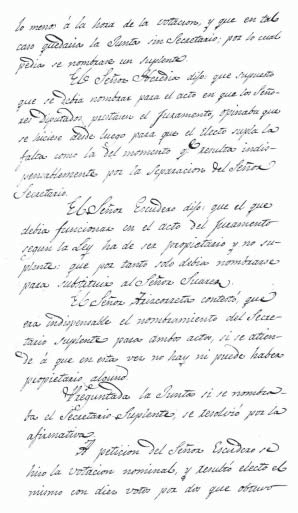 lo menos á la hora de la votacion, y que en tal
caso quedaria la Junta sin Secretario; por lo cual
pedia se nombrase un suplente.
El Señor Heredia dijo: que supuesto
que se debia nombrar para el acto en que los Seño-
res Diputados prestasen el juramento, opinaba que
se hiciese desde luego para que el Electo supla la
falta como la del momento q.e resulta indis-
pensablemente por la separacion del Señor
Secretario.
El Señor Escudero dijo: que el que
debia funcionar en el acto del juramento
segun la Ley ha de ser propietario y no su-
plente; que por tanto solo debia nombrarse
para substituir al Señor Suarez.
El Señor Arincorreta contestó, que
era indispensable el nombramiento del Secre-
tario Suplente para ambos actos, si se atien-
de á que en esta vez no hay ni puede haber
propietario alguno.
Preguntada la Junta si se nombra-
ba el Secretario Suplente, se resolvió por la
afirmativa.
A peticion del Señor Escudero se
hizo la votacion nominal, y resultó electo el
mismo con diez votos por dos que obtuvo